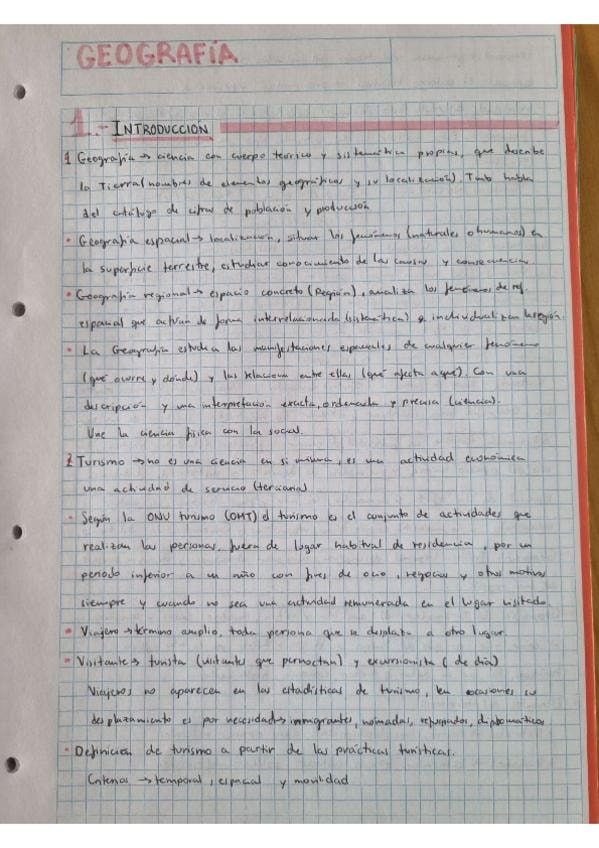 GEOGRAFÍA
1.- INTRODUCCION
1 Geografía → ciencia con cuerpo teórico y sistemática propias, que describe
la Tierra (nombres de elementos geográficos y su localización). Tmb habla
del catálogo de cifras de población y producción
• Geografía espacial → localización, situar los fenómenos (naturales o humanos) en
la superficie terrestre, estudiar conocimiento de las causas y consecuencias.
• Geografía regional → espacio concreto (Región), analiza los fenómenos de ref.
espacial que actúan de forma interrelacionada (sistemática) e individualizan la región.
• La Geografía estudia las manifestaciones espaciales de cualquier fenómeno
(qué ocurre y dónde) y las relaciona entre ellas (qué afecta a qué). Con una
descripción y una interpretación exacta, ordenada y precisa (ciencia).
Une la ciencia física con la social.
2 Turismo → no es una ciencia en si misma, es una actividad económica
una actividad de servicio (terciaria)
• Según la ONU turismo (OMT) el turismo es el conjunto de actividades que
realizan las personas, fuera de lugar habitual de residencia, por un
periodo inferior a un año con fines de ocio, negocios y otros motivos
siempre y cuando no sea una actividad remunerada en el lugar visitado.
• Viajero → término amplio, toda persona que se desplaza a otro lugar.
• Visitante → turista (visitantes que pernoctan) y excursionista (de día)
Viajeros no aparecen en las estadísticas de turismo, en ocasiones su
desplazamiento es por necesidad → immigrantes, nomadas, refugiados, diplomáticos
• Definición de turismo a partir de las prácticas turísticas.
Criterios → temporal, espacial y movilidad